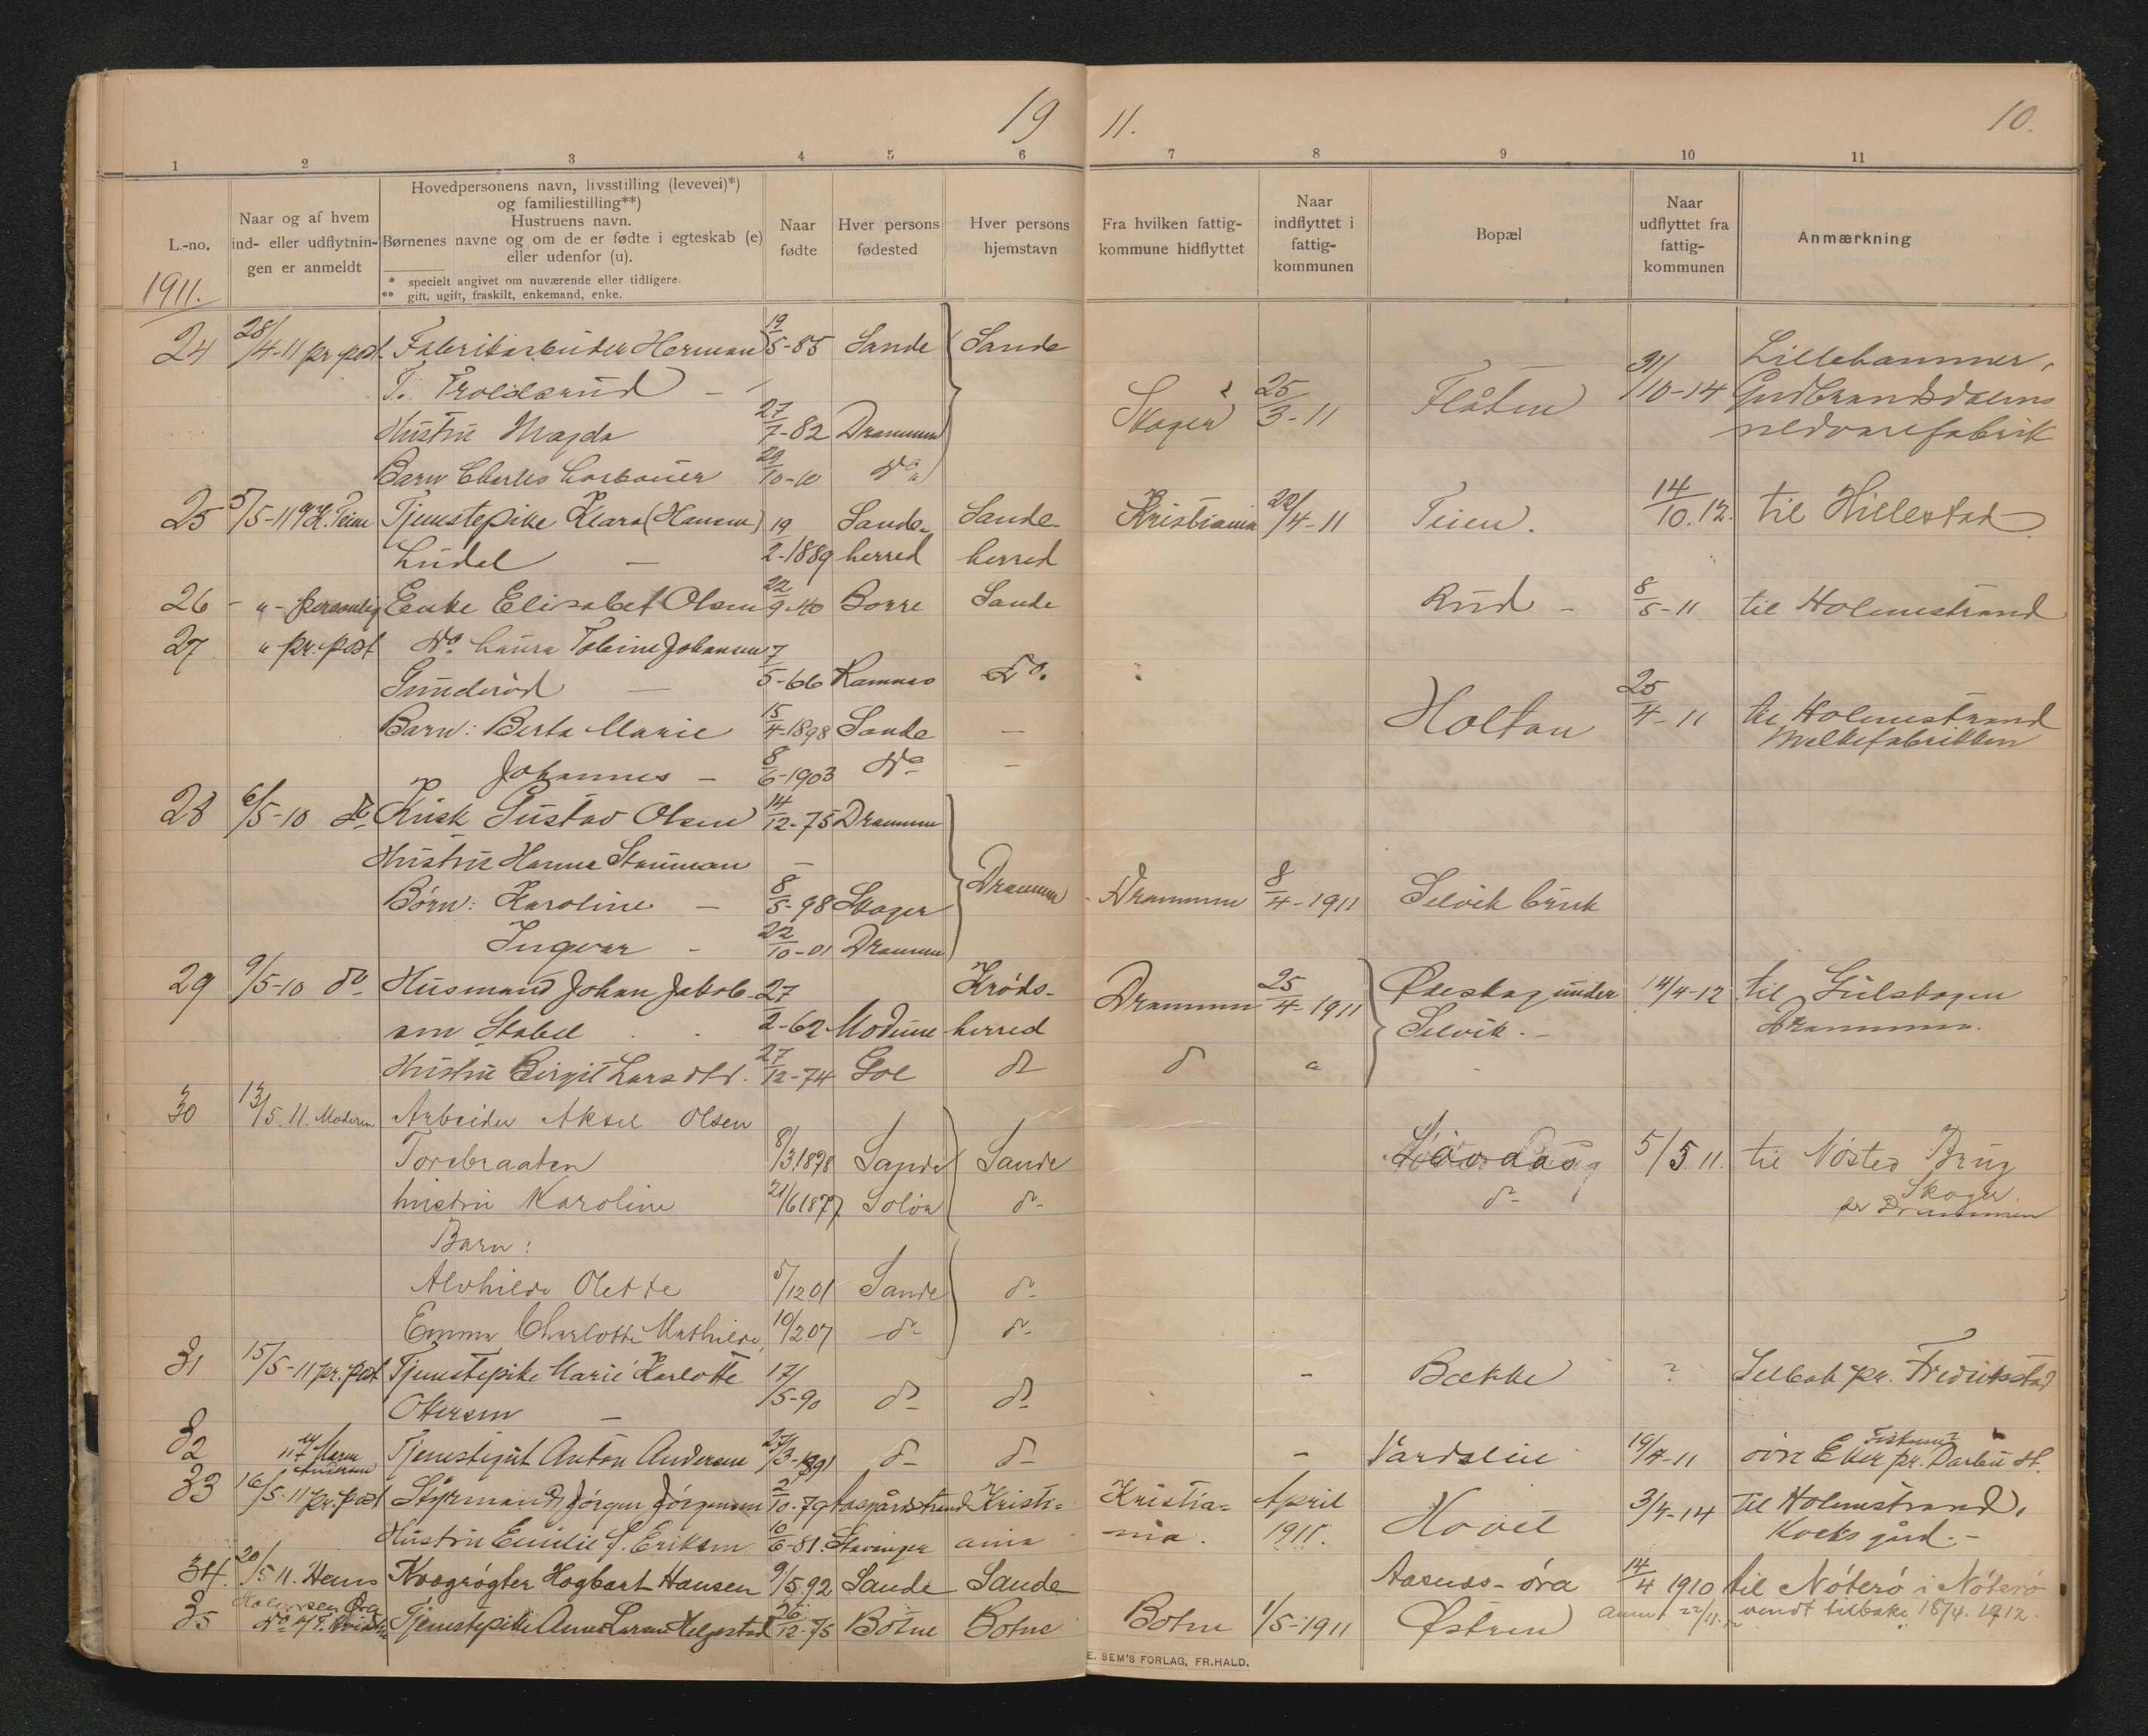 19 11. 10.
1 2 3 4 5 6 7 8 9 10 11
L.-no.
1911.
Naar og af hvem
ind- eller udflytnin-
gen er anmeldt
Hovedpersonens navn, livsstilling (levevei)*)
og familiestilling**)
Hustruens navn.
Børnenes navne og om de er fødte i egteskab (e)
eller udenfor (u).
* specielt angivet om nuværende eller tidligere.
** gift, ugift, fraskilt, enkemand, enke.
Naar
fødte
Hver persons
fødested
Hver persons
hjemstavn
Fra hvilken fattig-
kommune hidflyttet
Naar
indflyttet i
fattig-
kommunen
Bopæl
Naar
udflyttet fra
fattig-
kommunen
Anmærkning
24 28/4-11 pr. post Fabrikarbeider Herman 19/5-85 Sande Sande Lillehammer,
T. Troldsrud – Skoger 25/3-11 Flåten 31/10-14 Gudbrandsdalens
Hustru Magda 27/7-82 Drammen
Barn Charles 29/10-10 do
25 5/5-11 Teien Tjenstepike Klara (Hansen) 19/2-1889 Sande- Sande- Kristiania 22/4-11 Teien. 14/10.12. til Hillestad
Lüdal – herred herred
26 - " - personlig Enke Elisabet Olsen 22/9-40 Borre Sande Rud - 8/5-11 til Holmestrand
27 " pr. post do Laura Tobine Johansen 7/5-66 Ramnes do.
Gunderød – Holtan 25/4-11 til Holmestrand
Barn: Berta Marie 15/4-1898 Sande – Melkefabrikken
Johannes – 8/6-1903 do –
28 6/5-10 do Kusk Gustav Olsen 14/12-75 Drammen
Hustru Hanna –
Børn: Karoline – 8/5-98 Skoger Drammen Drammen 8/4-1911 Selvik bruk
Ingvar - 22/10-01 Drammen
29 9/5-10 do Husmand Johan Jakob- 27/2-62 Modum Krøds- Drammen 25/4-1911 under 14/4-12 til Gulskogen
sen Stabell herred Selvik. – Drammen.
Hustru Birgit Larsdtr. 27/12-74 Gol do do "
30 13/5. 11. Moderen Arbeider Aksel Olsen
Torebraaten 8/3.1878 Sande Sande Løvaas 5/5.11. til Nøsted Brug
hustru Karoline 21/6 1877 Solør do- do- Skoger.
pr Drammen
Barn:
Alvhilde Olette 5/12.01 Sande do-
Emma Charlotte Mathilde, 10/2.07 do- do-
31 15/5-11 pr. post Tjenstepike Marie Karlotte 17/5-90 do do - Bække ? Selbak pr. Fredriksstad
Ottersen –
32 Tjenstegut Anton Andersen 27/3-1891 do- do- – Vardslie 19/4-11 øvre Eker pr. Darbu st.
Fiskum
33 16/5-11 pr. post Styrmand Jørgen Jørgensen 2/10.79 Aasgårdstrand Kristi- Kristia- April Hovet 3/4-14 til Holmestrand,
Hustru Emilie S. Eriksen 10/6-81. Stavanger ania nia. 1911. Kocks gård. –
34. 20/5 11. Hans Kvægrøgter Hagbart Hansen 9/5.92 Sande Sande Aasnæs-øra 14/4 1910 til Nøterø i Nøterø
35 Tjenstepike Anna Larsen Helgestad 26/12-75 Botne Botne Botne 1/5-1911 Østren anm. 22/11. vendt tilbake 18/4. 1912.
E. SEM'S FORLAG, FR.HALD.